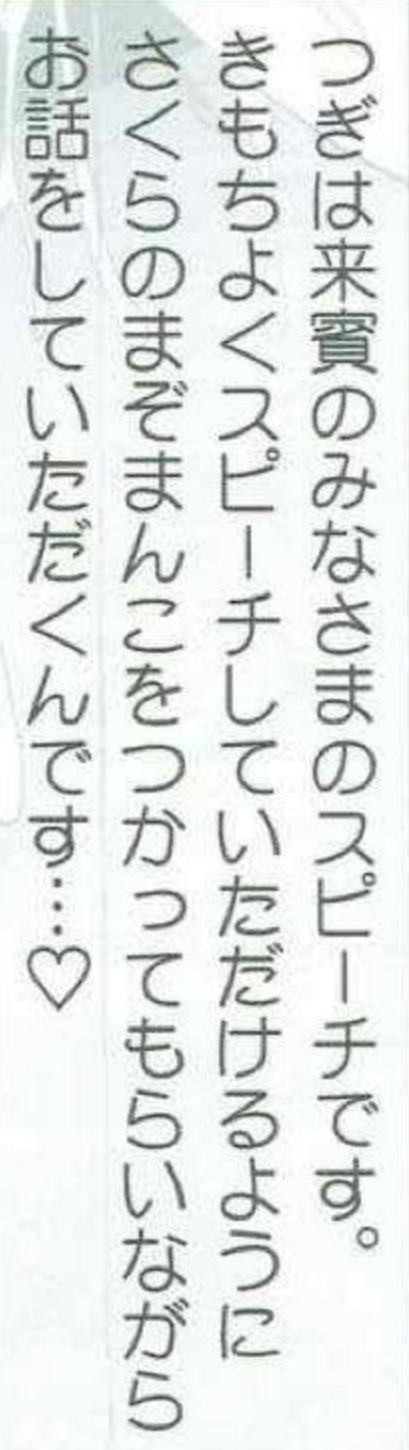 つぎは来賓のみなさまのスピーチです。
きもちよくスピーチしていただけるように
さくらのまぞまんこをつかってもらいながら
お話をしていただくんです…♡